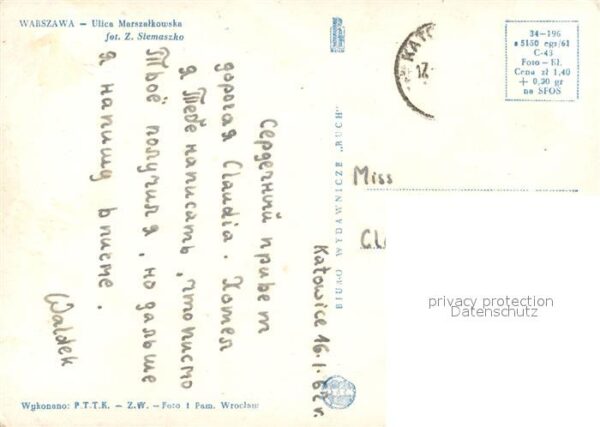 WARSZAWA — Ulica Marszałkowska
fot. Z. Siemaszko
Katowice 16.1.62 r.
Сердечный привет
дорогая Claudia. Хотел
я Тебе написать, что писмо
Твоё получил я, но дальше
я напишу в писме.
Waldek
Wykonano: P.T.T.K. — Z.W. — Foto 1 Pam. Wrocław
BIURO WYDAWNICZE „RUCH"
KATO
17.
34-196
a 5150 egz/61
C-43
Foto — Kl.
Cena zł 1,40
+ 0,20 gr
na SFOS
Miss
privacy protection
Datenschutz